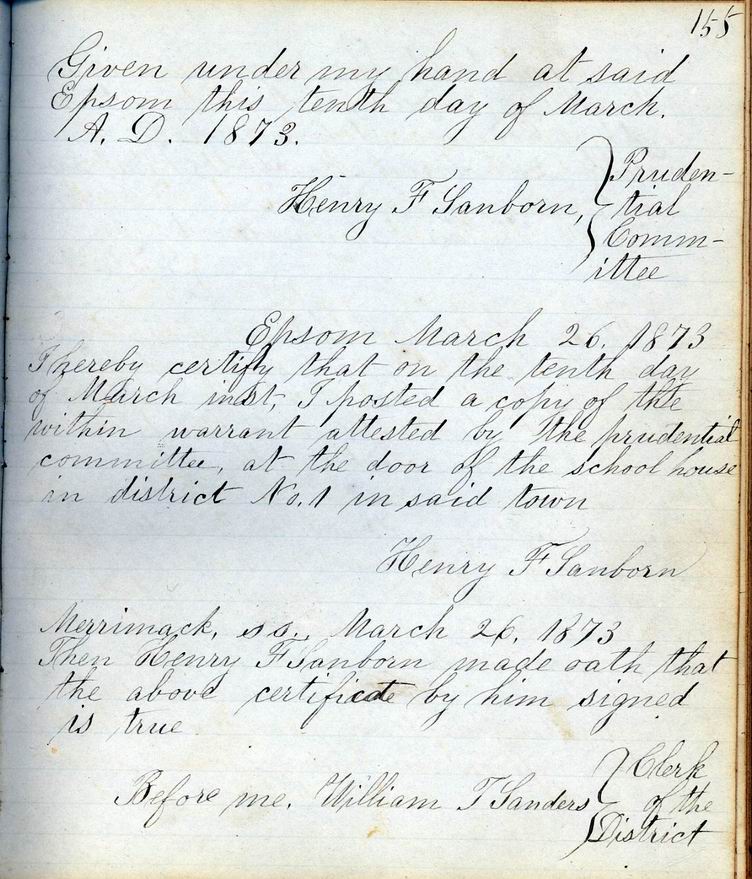 155
Given under my hand at said
Epsom this tenth day of March.
A. D. 1873.
Henry F Sanborn, } Pruden-
tial
Comm-
ittee
Epsom March 26. 1873
I hereby certify that on the tenth day
of March inst, I posted a copy of the
within warrant attested by the prudential
committee, at the door of the school house
in district No. 1 in said town
Henry F Sanborn
Merrimack, ss. March 26, 1873
Then Henry F Sanborn made oath that
the above certificate by him signed
is true
Before me. William T Sanders } Clerk
of the
District